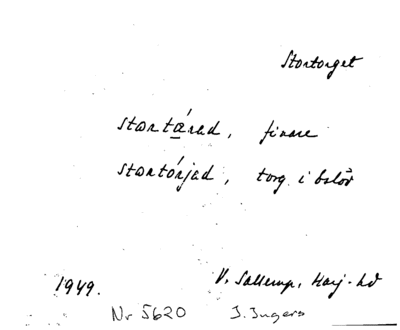 Stortorget
stortǽrad, finare
stortórjad, torg i bslöv
1949. V. Sallerup, Harj. hd
Nr 5620 I. Ingers